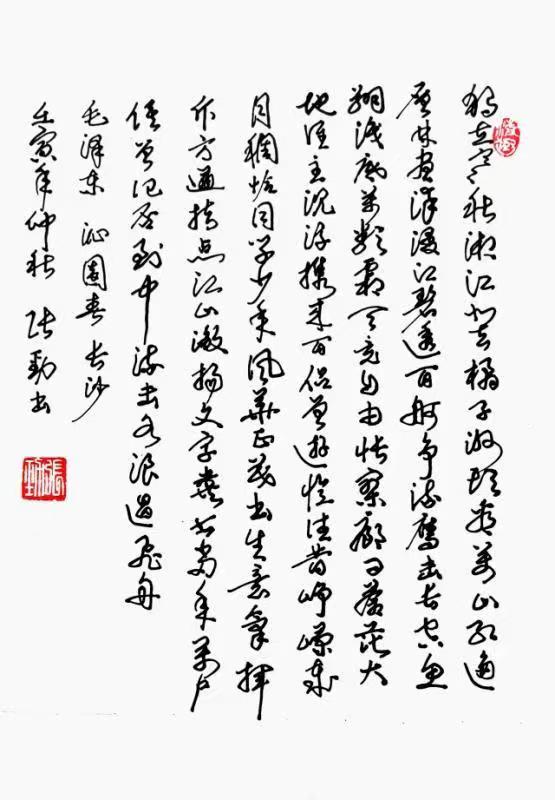 独立寒秋湘江北去橘子洲头看万山红遍
层林尽染漫江碧透百舸争流鹰击长空鱼
翔浅底万类霜天竞自由怅寥廓问苍茫大
地谁主沉浮携来百侣曾游忆往昔峥嵘岁
月稠恰同学少年风华正茂书生意气挥
斥方遒指点江山激扬文字粪土当年万户
侯曾记否到中流击水浪遏飞舟
毛泽东 沁园春 长沙
壬寅年仲秋 张劲书
張勁